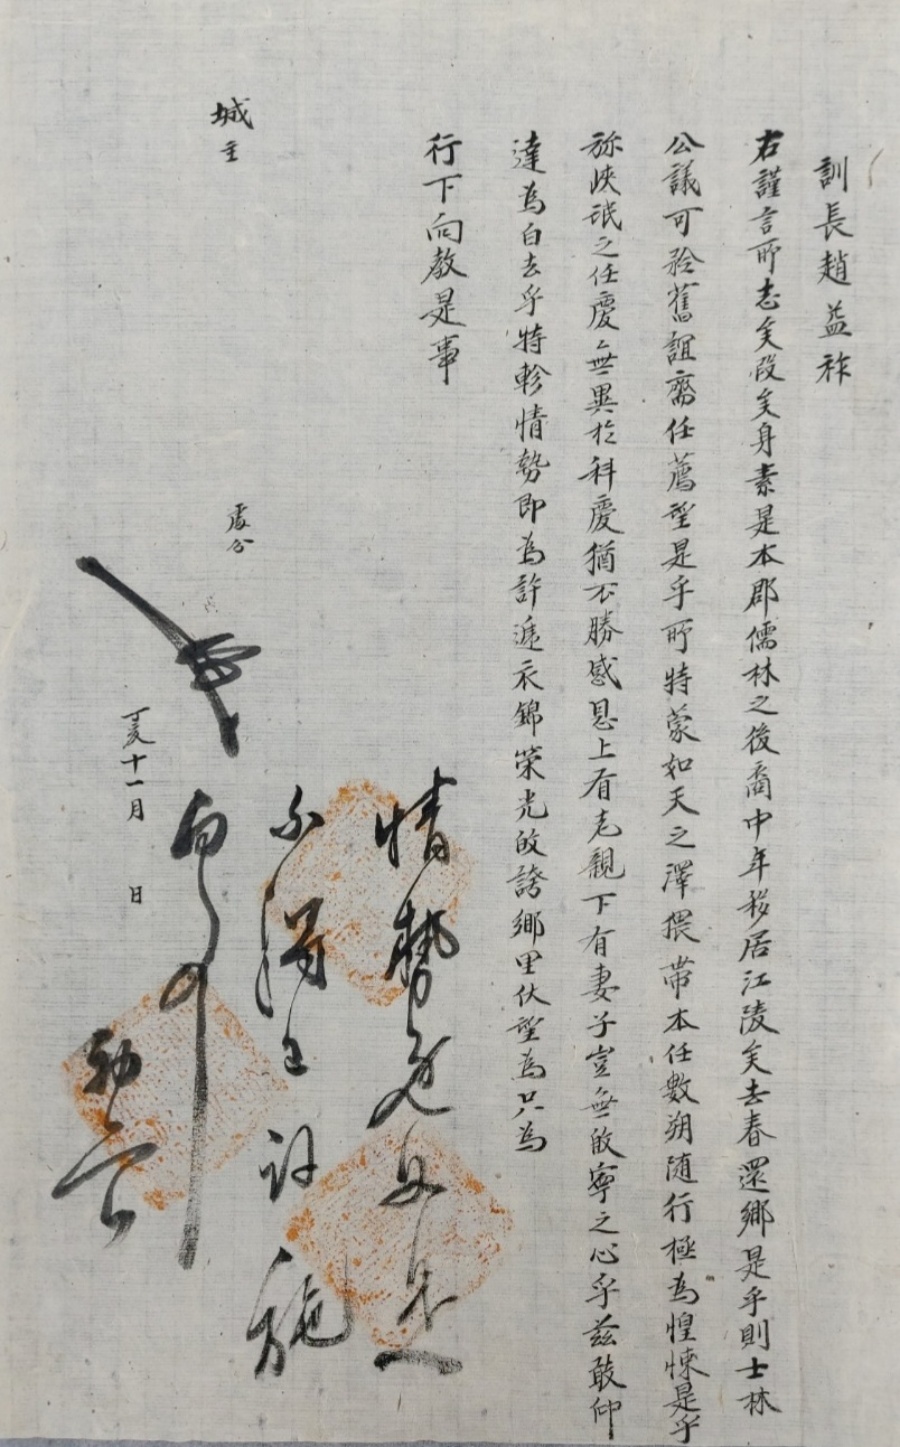 訓長趙益祚
右謹言所志矣段矣身素是本郡儒林之後裔中年移居江陵矣去春還鄉是乎則士林
公議可矜舊誼齋任薦望是乎所特蒙如天之澤猥帶本任數朔随行極為惶悚是乎
称峽氓之任慶無異於科慶猶不勝感恩上有老親下有妻子豈無敀寧之心乎玆敢仰
達為白去乎特軫情勢即為許遞衣錦榮光敀誇鄉里伏望為只為
行下向敎是事
城主
處分
丁亥十一月 日
情勢
不得已許施
向事
初六